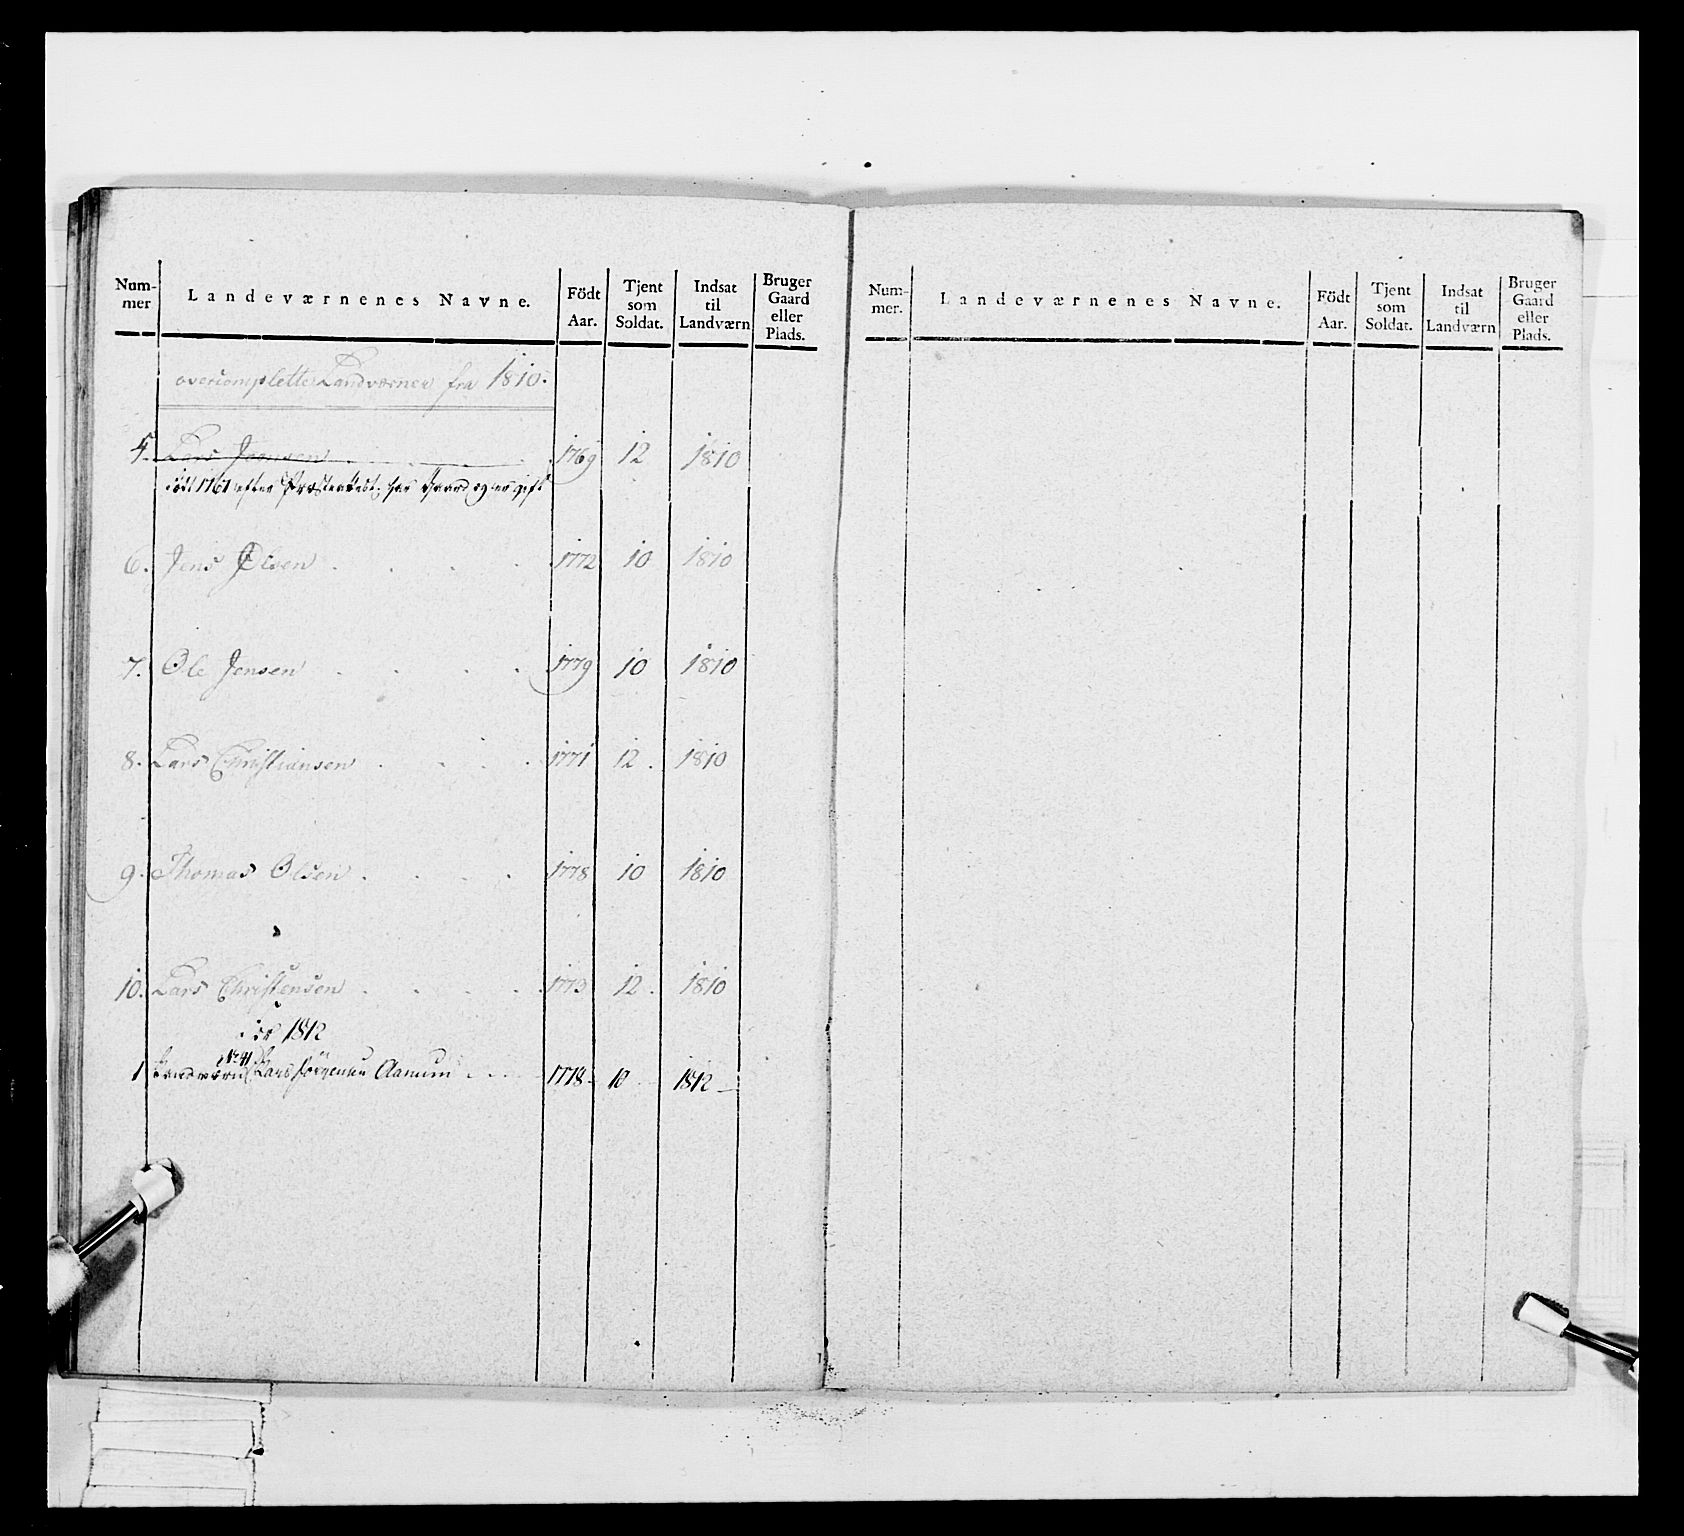 Num-
mer
Landeværnenes Navne.
Födt
Aar.
Tjent
som
Soldat.
Indsat
til
Landværn
Bruger
Gaard
eller
Plads.
overcomplette Landværner fra 1810.
Lars 1769 12 1810
födt 1761 efter Præsteattest; har Gaard og er gift
6. Jens Olsen 1772 10 1810
7. Ole Jensen 1779 10 1810
8. Lars Christiansen 1771 12. 1810
9. Thomas Olsen 1778 10 1810
10. Lars Christensen 1773 12. 1810
för 1812
No 41
1 Landværn Lars Jörgensen Aamum 1778 10 1812
Num-
mer.
Landeværnenes Navne.
Födt
Aar.
Tjent
som
Soldat.
Indsat
til
Landværn
Bruger
Gaard
eller
Plads.